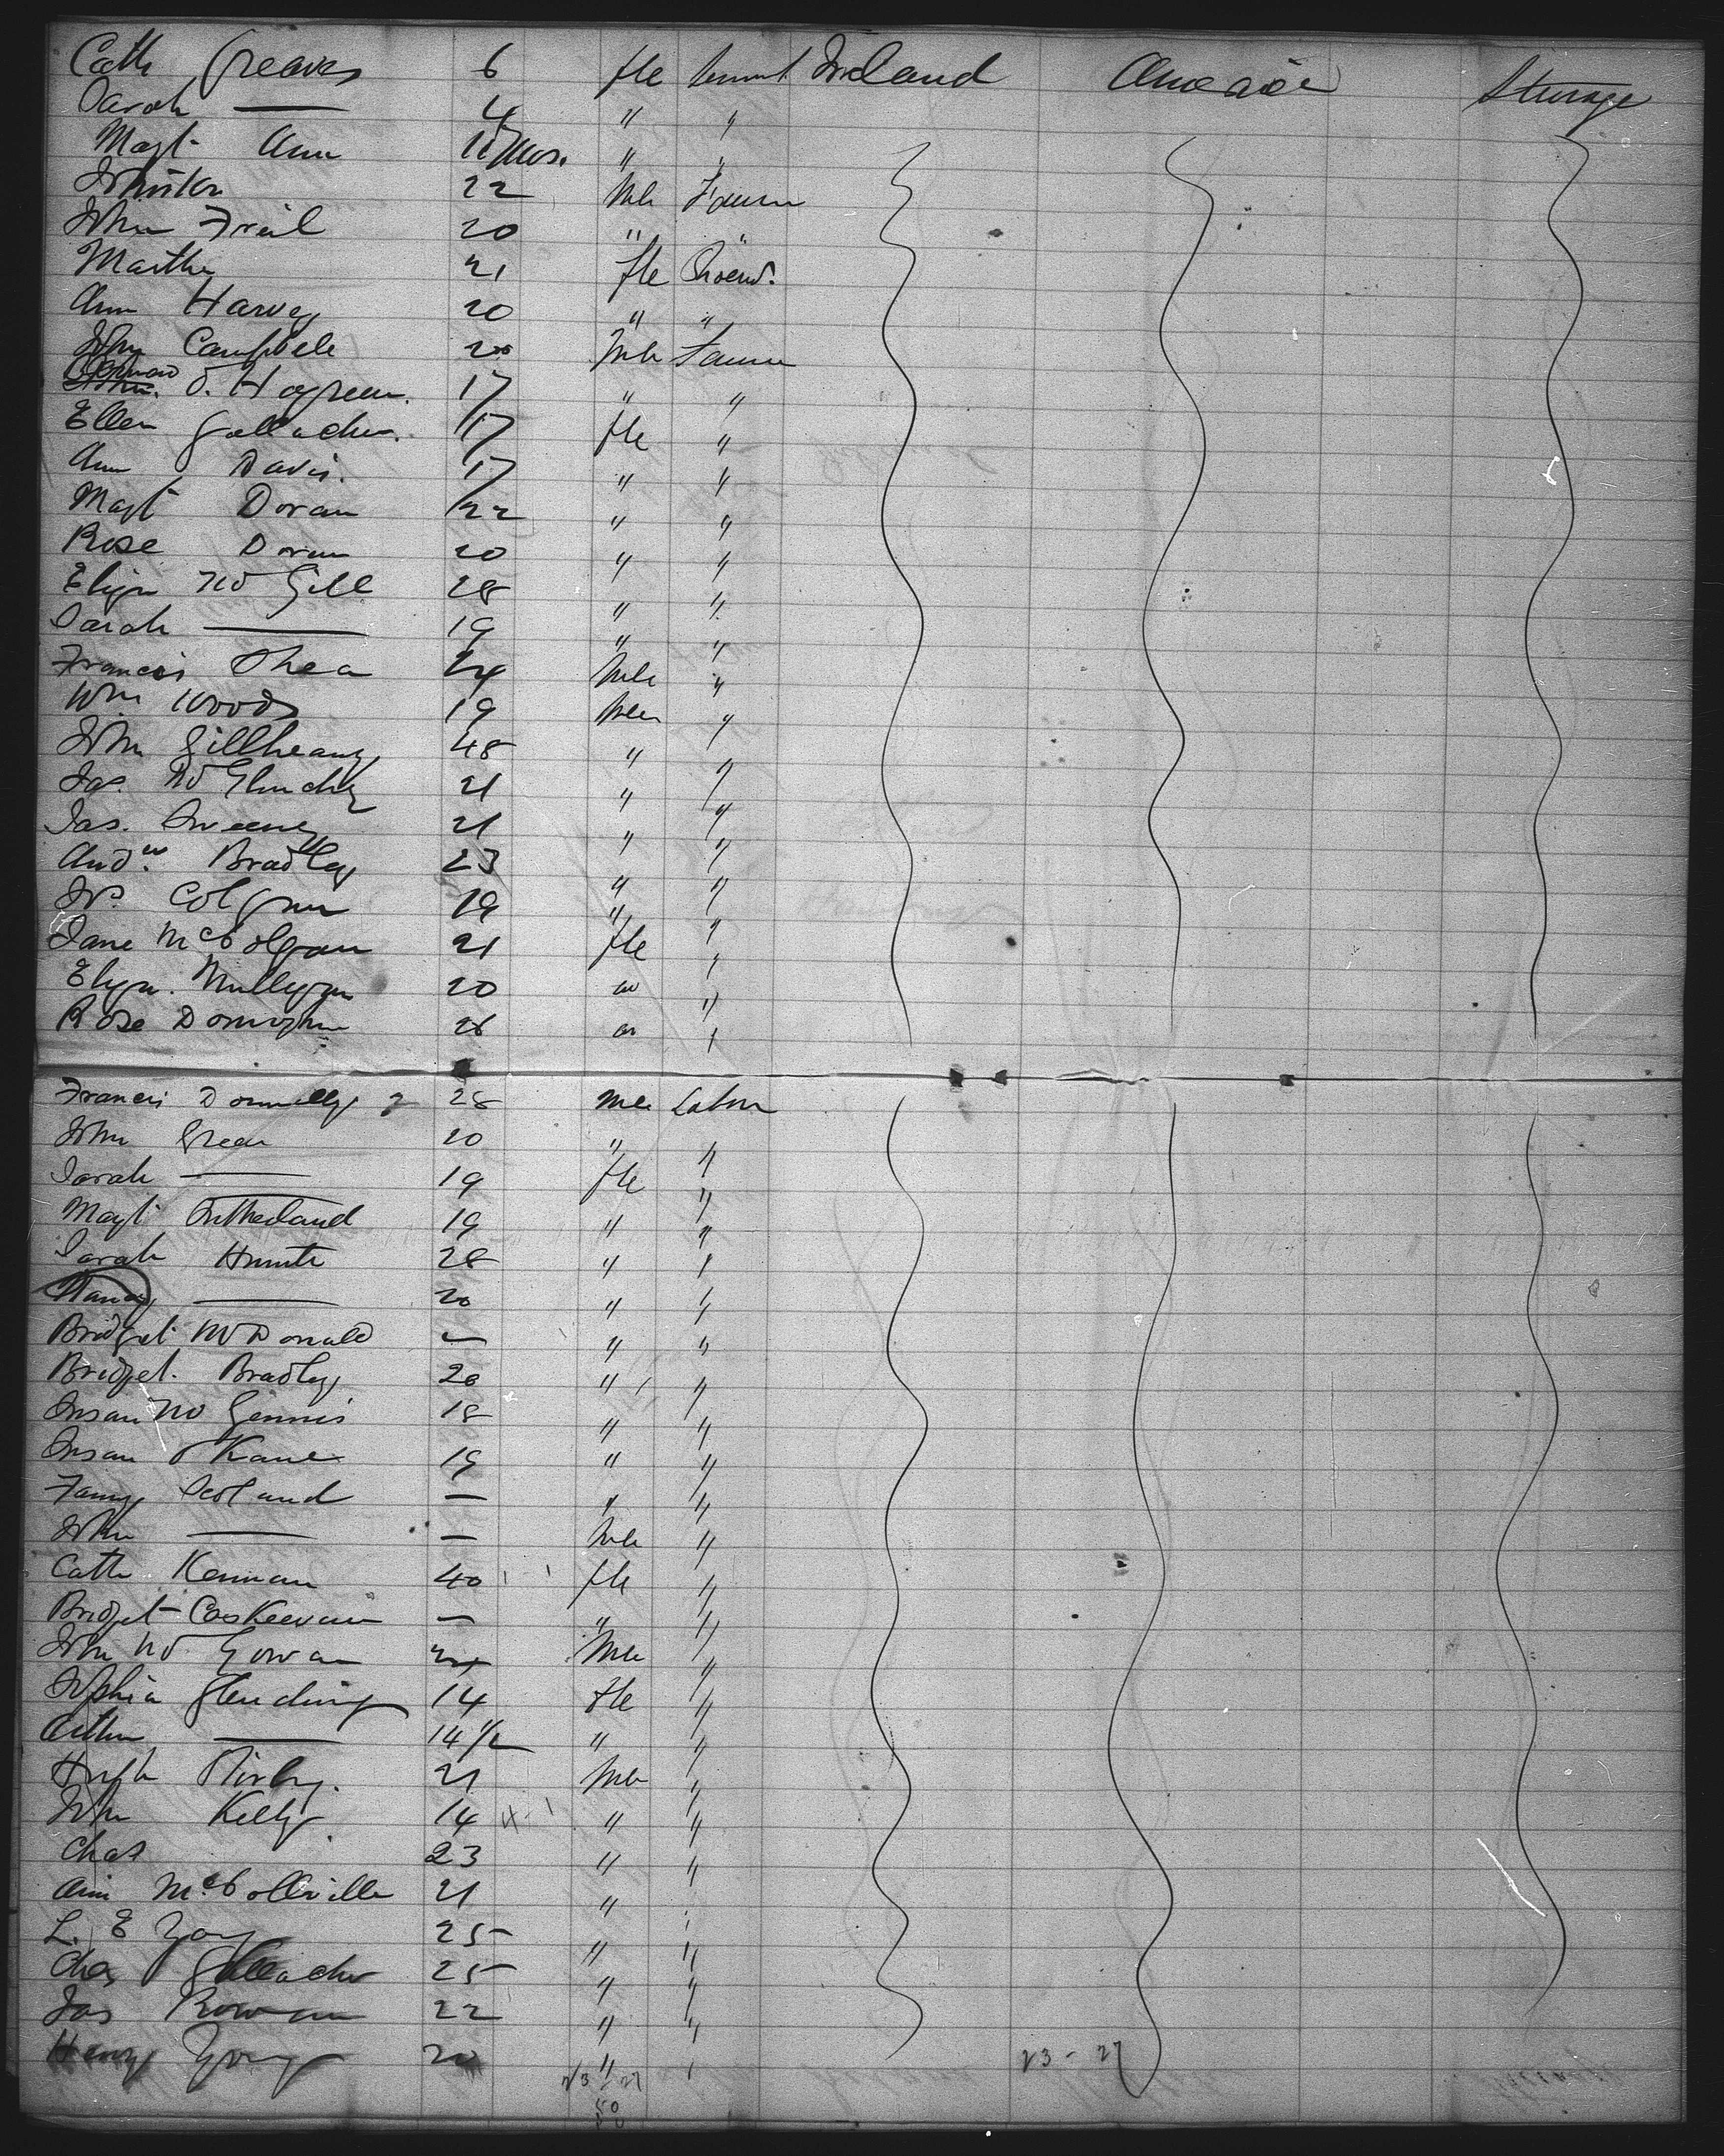 Cath Greaves 6 fle Servnt Ireland America Steerage
Sarah — 4 " "
Magt Ann 11 mos. " "
22 Mle Farmr
John Freil 20 " "
Martha 21 fle
Ann Harvey 20 " "
John Campbele 20 Mle Farmr
O. Hagreen. 17 " "
Ellen Gallacher. 17 fle "
Ann Davis. 17 " "
Magt Doran 22 " "
Rose Doran 20 " "
Eliza Mc Gill 28 " "
Sarah — 19 " "
Francis Shea 24 Mle "
Wm Woods 19 Mle "
John Gillheany 48 " "
Jas. Mc 21 " "
Jas. Sweeney 21 " "
Andw. Bradley 23 " "
Jno. Colgan 19 " "
Jane McColgan 21 fle "
Eliza. Mulligan 20 " "
Rose Donoghue 26 " "
Francis Donnelly 28 Mle Labor
John Grear 20 " "
Sarah — 19 fle "
Magt Sutherland 19 " "
Sarah Hunter 28 " "
Nancy — 20 " "
Bridget McDonald — " "
Bridget. Bradley 20 " "
Susan Mc Ginnis 18 " "
Susan O Kane 19 " "
Fanny Scoland — " "
John — — Mle "
Cath Kennan 40 fle "
Bridget — " "
John Mc Gowan Mle "
Sophia Glendining 14 fle "
Arthur — 14 1/2 " "
Hugh 21 Mle "
John Kelly 14 " "
Chas 23 " "
Ann McCollville 21 " "
L. E 25 " "
Chas Gallacher 25 " "
Jas Rowan 22 " "
Henry Young 20 " "
23 - 27
23 27
50